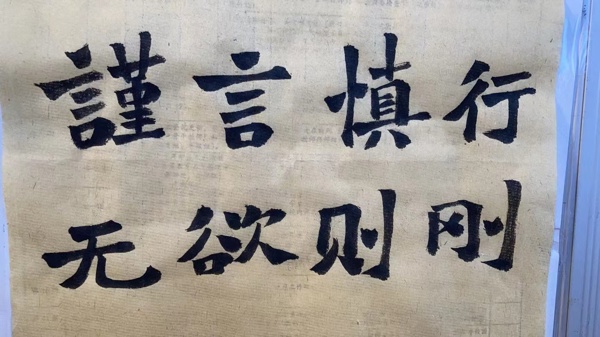 謹言慎行
无欲则刚